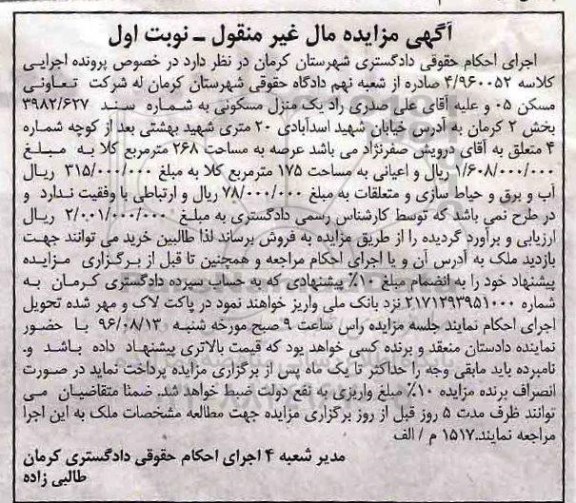 آگهی مزایده مال غیر منقول ـ نوبت اول
اجرای احکام حقوقی دادگستری شهرستان کرمان در نظر دارد در خصوص پرونده اجرایی
کلاسه ۴/۹۶۰۰۵۲ صادره از شعبه نهم دادگاه حقوقی شهرستان کرمان له شرکت تعاونی
مسکن ۰۵ و علیه آقای علی صدری راد یک منزل مسکونی به شماره سند ۳۹۸۲/۶۲۷
بخش ۲ کرمان به آدرس خیابان شهید اسدآبادی ۲۰ متری شهید بهشتی بعد از کوچه شماره
۴ متعلق به آقای درویش صفرنژاد می باشد عرصه به مساحت ۲۶۸ مترمربع کلا به مبلغ
۱/۶۰۸/۰۰۰/۰۰۰ ریال و اعیانی به مساحت ۱۷۵ مترمربع کلا به مبلغ ۳۱۵/۰۰۰/۰۰۰ ریال
آب و برق و حیاط سازی و متعلقات به مبلغ ۷۸/۰۰۰/۰۰۰ ریال و ارتباطی با وقفیت ندارد و
در طرح نمی باشد که توسط کارشناس رسمی دادگستری به مبلغ ۲/۰۰۱/۰۰۰/۰۰۰ ریال
ارزیابی و برآورد گردیده را از طریق مزایده به فروش برساند لذا طالبین خرید می توانند جهت
بازدید ملک به آدرس آن و یا اجرای احکام مراجعه و همچنین تا قبل از برگزاری مزایده
پیشنهاد خود را به انضمام مبلغ ۱۰٪ پیشنهادی که به حساب سپرده دادگستری کرمان به
شماره ۲۱۷۱۲۹۳۹۵۱۰۰۰ نزد بانک ملی واریز خواهند نمود در پاکت لاک و مهر شده تحویل
اجرای احکام نمایند جلسه مزایده راس ساعت ۹ صبح مورخه شنبه ۹۶/۰۸/۱۳ با حضور
نماینده دادستان منعقد و برنده کسی خواهد بود که قیمت بالاتری پیشنهاد داده باشد و.
نامبرده باید مابقی وجه را حداکثر تا یک ماه پس از برگزاری مزایده پرداخت نماید در صورت
انصراف برنده مزایده ۱۰٪ مبلغ واریزی به نفع دولت ضبط خواهد شد. ضمنا متقاضیان می
توانند ظرف مدت ۵ روز قبل از روز برگزاری مزایده جهت مطالعه مشخصات ملک به این اجرا
مراجعه نمایند.۱۵۱۷ م / الف
مدیر شعبه ۴ اجرای احکام حقوقی دادگستری کرمان
طالبی زاده